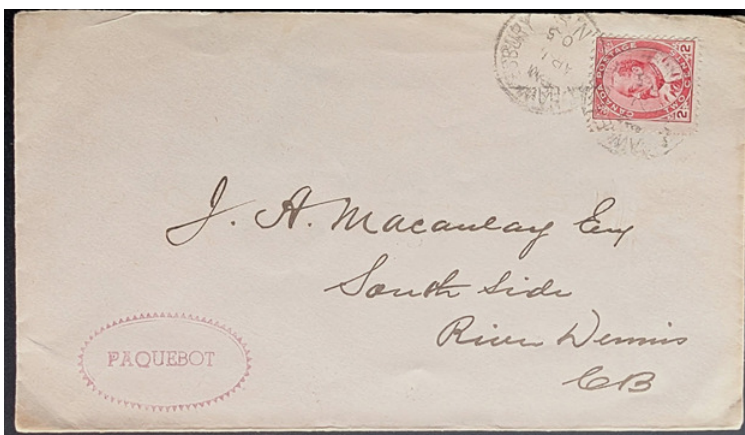 CANADA POSTAGE
2 TWO CENTS 2
AP 1
05
J. A. Macaulay Esq
South Side
River Dennis
CB
PAQUEBOT